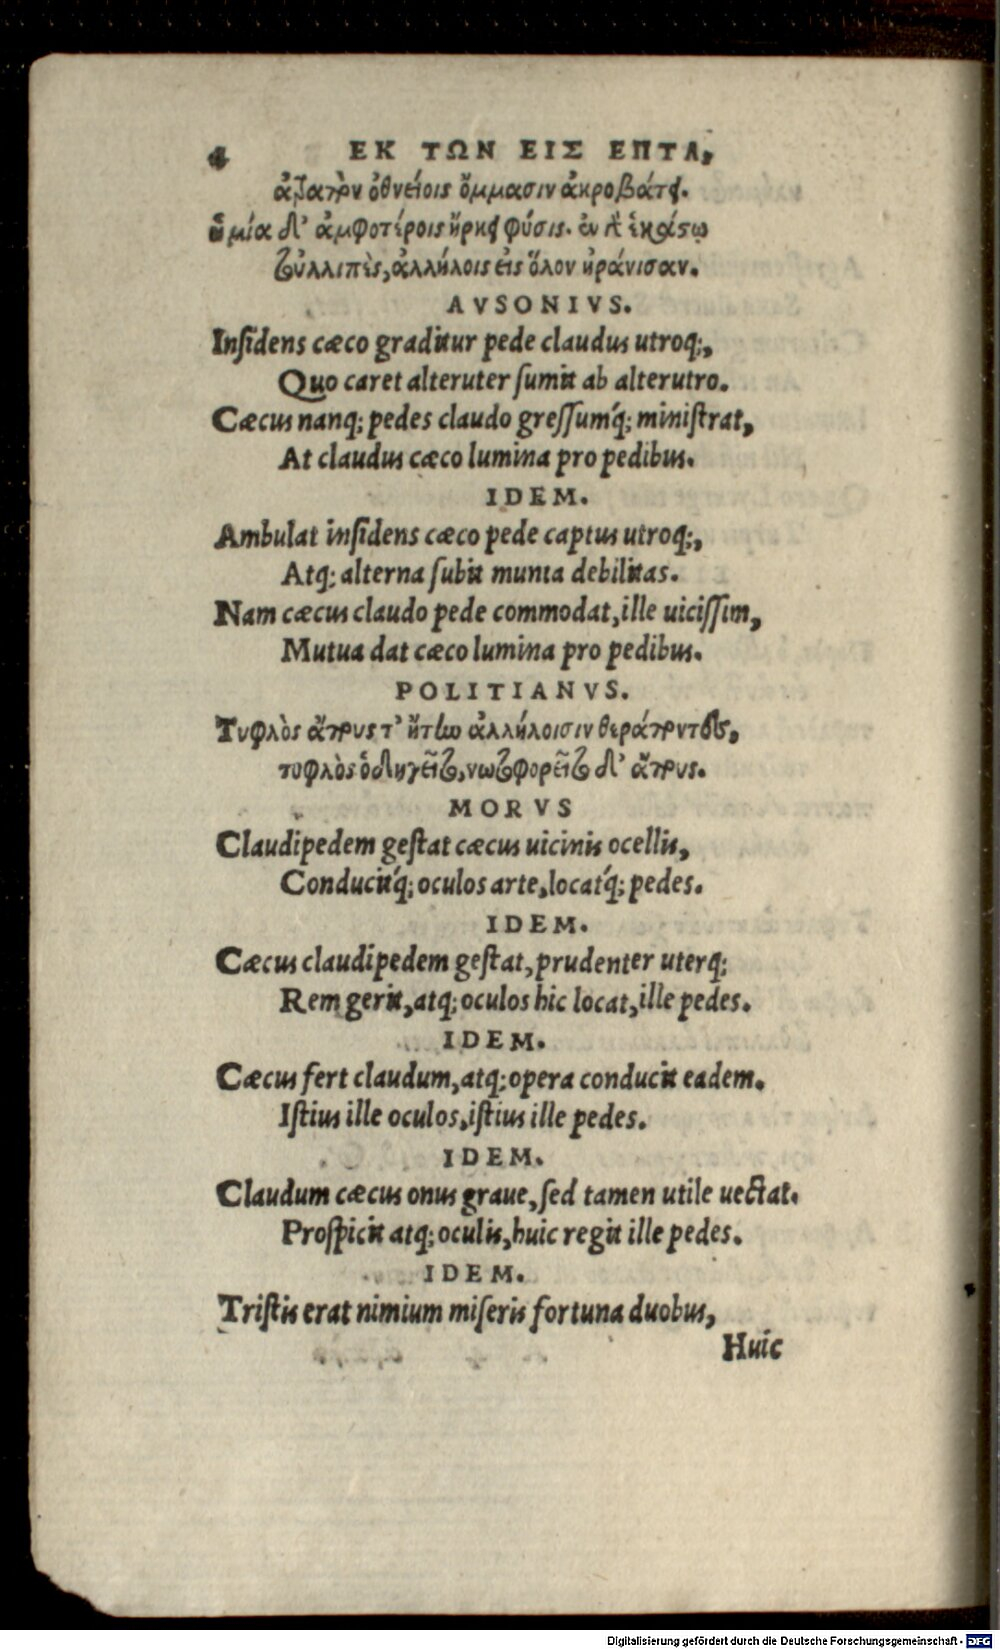 4 ΕΚ ΤΩΝ ΕΙΣ ΕΠΤΑ,
ἀτραπὸν ὀθνείοις ὄμμασιν ἀκροβάτει.
ἡ μία δ' ἀμφοτέροις ἤρκει φύσις. ἐν γὰρ ἑκάστῳ
τοὐλλιπὲς, ἀλλήλοις εἰς ὅλον ἠράνισαν.
AVSONIVS.
Insidens cæco graditur pede claudus utroq;,
Quo caret alteruter sumit ab alterutro.
Cæcus nanq; pedes claudo gressumq́; ministrat,
At claudus cæco lumina pro pedibus.
IDEM.
Ambulat insidens cæco pede captus utroq;,
Atq; alterna subit munia debilitas.
Nam cæcus claudo pede commodat, ille uicissim,
Mutua dat cæco lumina pro pedibus.
POLITIANVS.
Τυφλὸς ἄπους τ' ἤτω ἀλλήλοισιν θεράποντες,
τυφλὸς ὁδηγεῖται, νωτοφορεῖται δ' ἄπους.
MORVS
Claudipedem gestat cæcus uicinis ocellis,
Conducitq́; oculos arte, locatq́; pedes.
IDEM.
Cæcus claudipedem gestat, prudenter uterq;
Rem gerit, atq; oculos hic locat, ille pedes.
IDEM.
Cæcus fert claudum, atq; opera conducit eadem.
Istius ille oculos, istius ille pedes.
IDEM.
Claudum cæcus onus graue, sed tamen utile uectat.
Prospicit atq; oculis, huic regit ille pedes.
IDEM.
Tristis erat nimium miseris fortuna duobus,
Huic
Digitalisierung gefördert durch die Deutsche Forschungsgemeinschaft - DFG